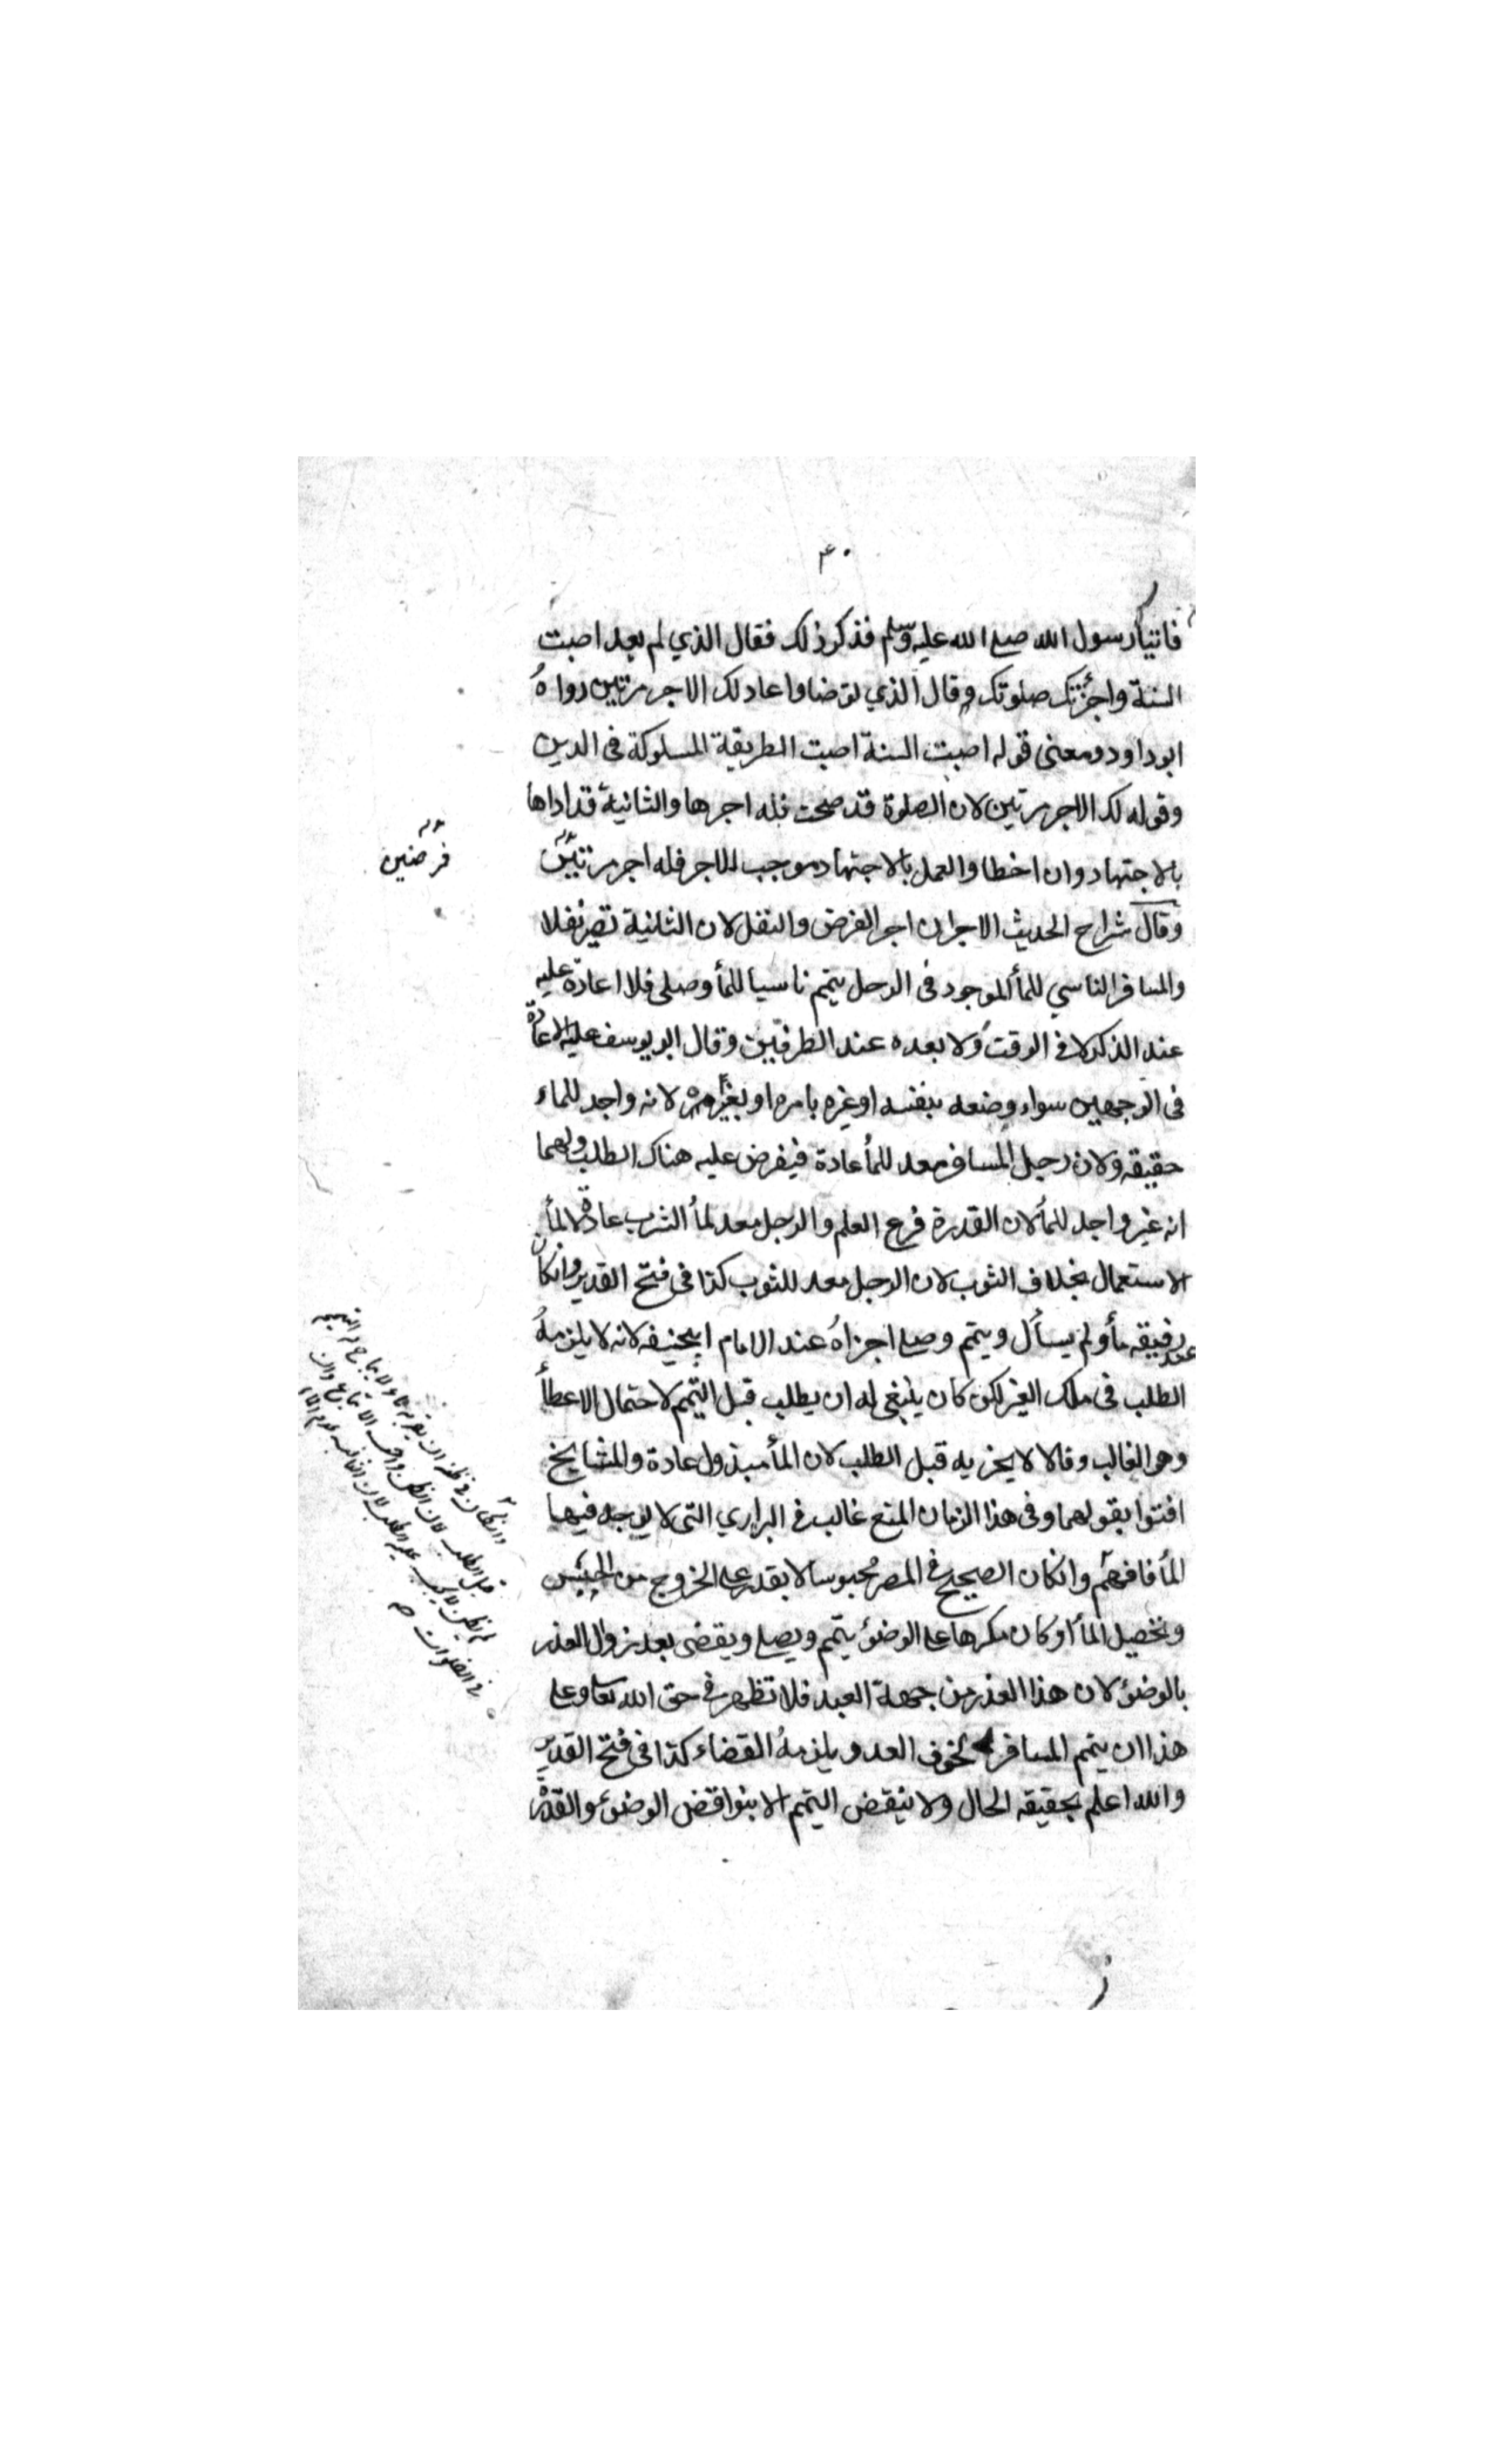 ۴۰
فاتيا رسول الله صلى الله عليه وسلم فذكر ذلك فقال الذي لم يعد اصبت
السنة واجزئتك صلوتك وقال الذي توضا واعاد لك الاجر مرتين رواهُ
ابوداود ومعنى قوله اصبت السنة اصبت الطريقة المسلوكة فى الدين
وقوله لك الاجر مرتين لان الصلوة قد صحت فله اجرها والثانية قد اداها
بالاجتهاد وان اخطا والعمل بالاجتهاد موجب للاجر فله اجر مرتين
فرضين
وقال شراح الحديث الاجران اجر الفرض والنفل لان الثانية تصير نفلا
والمسافر الناسي للمأ الموجود فى الرحل يتيمم ناسيا للمأ وصلى فلا اعادة عليه
عند الذكر لا فى الوقت ولا بعده عند الطرفين وقال ابو يوسف عليه الاعادة
فى الوجهين سواء وضعه بنفسه او غيره بامره او بغير امره لانه واجد للماء
حقيقه ولان رحيل المسافر معد للمأ عادة فيفرض عليه هناك الطلب ولهما
انه غير واجد للمأ لان القدرة فرع العلم والرحل معد لمأ الشرب عادة لا لمأ
الاستعمال بخلاف الثوب لان الرحل معد للثوب كذا فى فتح القدير وانكان
عند رفيقه مأ ولم يسأل ويتمم وصلى اجزاهُ عند الامام ابيحنيفه لانه لا يلزمهُ
الطلب فى ملك الغير لكن كان ينبغى له ان يطلب قبل التيمم لاحتمال الاعطأ
وهو الغالب وقالا لا يجزيه قبل الطلب لان المأ مبذول عادة والمشايخ
افتوا بقولهما وفى هذا الزمان المنع غالب فى البراري التى لا يوجد فيها
المأ فافهم وانكان الصحيح فى المصر محبوسا لا يقدر على الخروج من الحبس
وتحصيل المأ او كان مكرها على الوضوء يتيمم ويصلى ويقضى بعد زوال العذر
بالوضوء لان هذا العذر من جهة العبد فلا تظهر فى حق الله تعالى وعلى
هذا ان يتيمم المسافر لخوف العدو يلزمهُ القضاء كذا فى فتح القدير
والله اعلم بحقيقه الحال ولا ينقض التيمم الا بنواقض الوضوء والقدرة